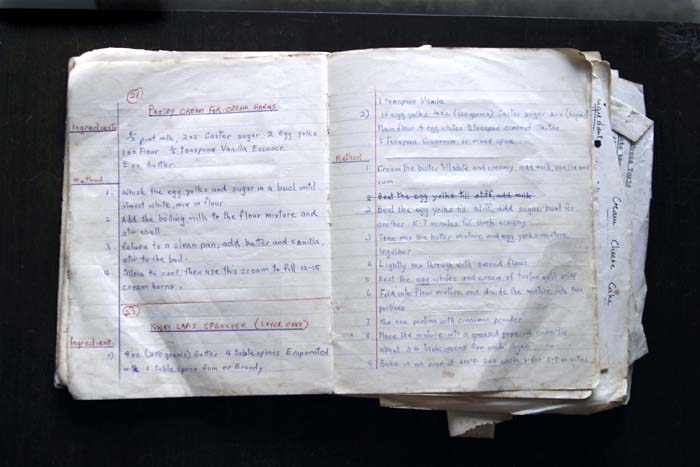 21
PASTRY CREAM FOR CREAM HORNS
Ingredients
½ pint milk, 2 oz Caster sugar 2 Egg yolks
1 oz Flour ½ teaspoon Vanilla Essence
½ oz Butter
Method
1. Whisk the egg yolks and sugar in a bowl until
almost white, mix in flour
2. Add the boiling milk to the flour mixture and
stir well
3. Return to a clean pan, add butter and vanilla,
stir to the boil.
4. Allow to cool, then use this cream to fill 12-15
cream horns.
23
LAPIS (LAYER CAKE)
Ingredient
1) 9 oz (270 grams) Butter 4 tablespoons Evaporated
milk 1 tablespoon Rum or Brandy
1 teaspoon Vanilla
2) egg yolks 4 oz (120 grams) Caster sugar 2 oz
Plain flour 4 egg whites ½ teaspoon cream of Tarter
teaspoon Cinnamon or mixed spice
Method
1 Cream the butter till white and creamy, add milk, vanilla and
rum
2 Beat the egg yolks till stiff, add milk
2 Beat the egg yolks till stiff, add sugar, beat for
another 5-7 minutes till thick creamy
3 Then mix the butter mixture and egg yolks mixture
together
4 Lightly mix through with sieved flour
5 Beat the egg whites and cream of tartar until stiff
6 Fold into flour mixture and divide the mixture into two
portions
7 Mix one portion with cinnamon powder
8 Place the mixture into a greased paper-lined cake tin
about 3-4 tablespoons for each layer
Bake in an oven at for 5-7 minutes
Ingredient
Cream Cheese Cake